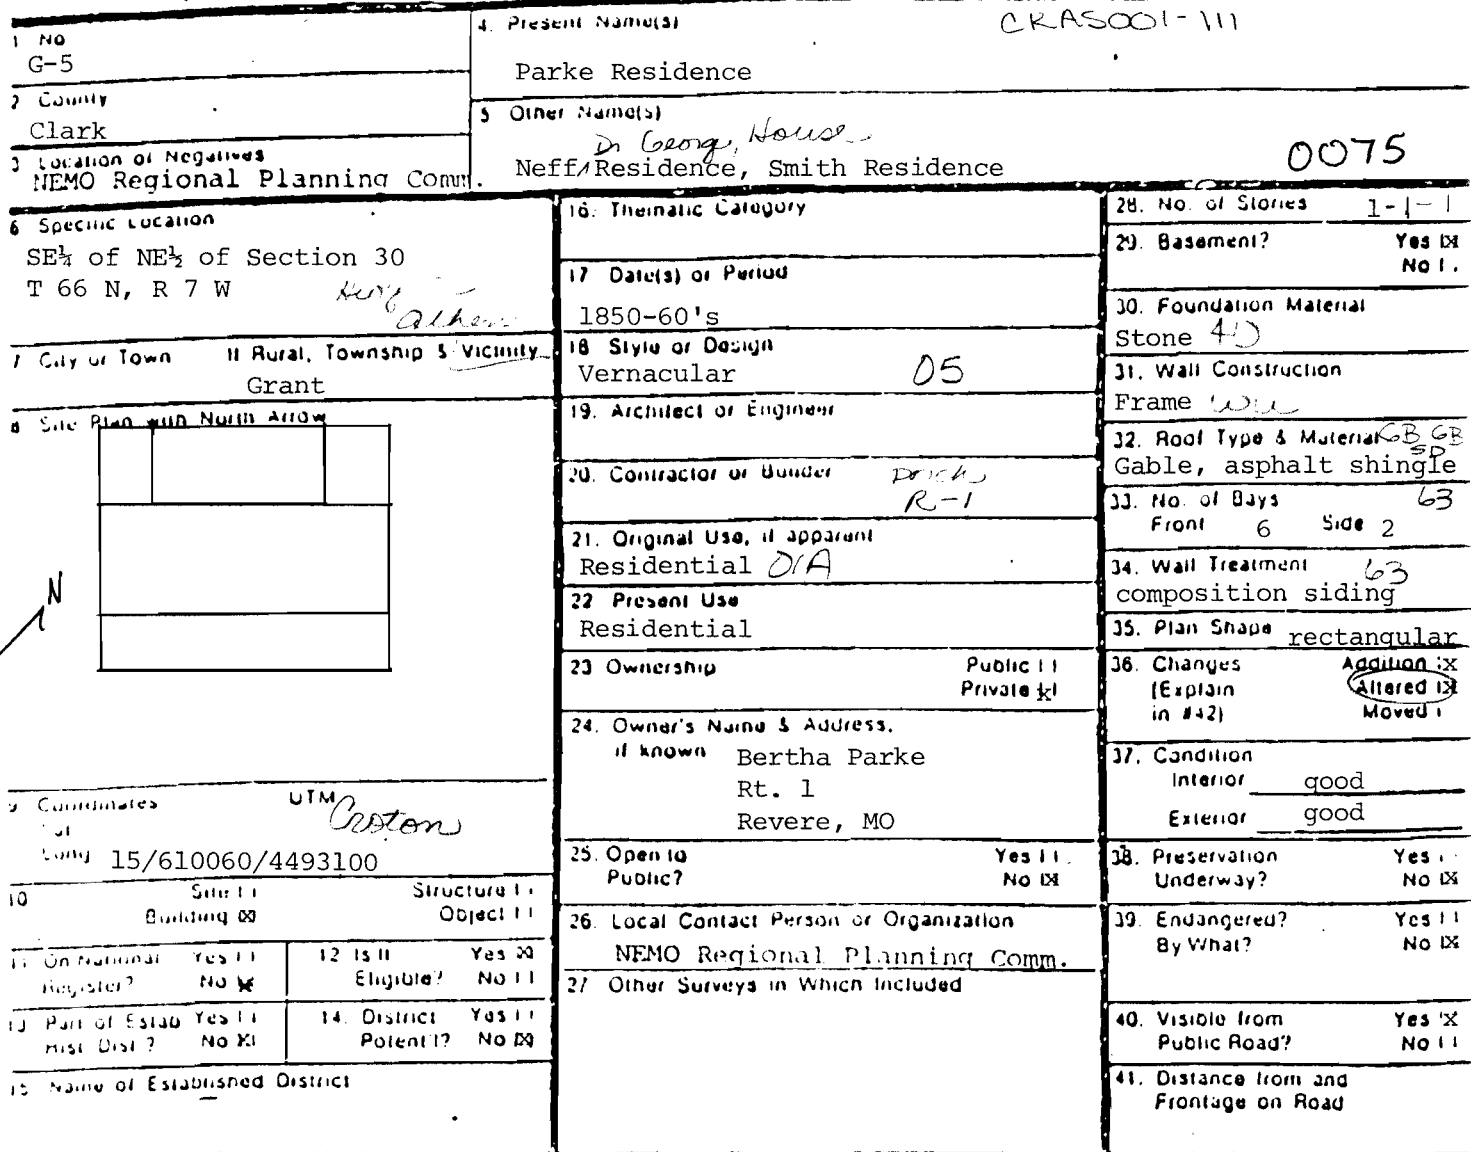 CRAS001-111
1 No
G-5
4. Present Name(s)
Parke Residence
2 County
Clark
5 Other Name(s)
Dr George, House
Neff/Residence, Smith Residence
0075
3 Location of Negatives
NEMO Regional Planning Comm.
6 Specific Location
SE¼ of NE½ of Section 30
T 66 N, R 7 W
7 City or Town If Rural, Township & Vicinity
Grant
8 Site Plan with North Arrow
N
9 Coordinates UTM
Croton
Lat
Long 15/610060/4493100
10 Site [ ] Structure [ ]
Building [X] Object [ ]
11 On National Yes [ ]
Register? No [X]
12 Is It Yes [X]
Eligible? No [ ]
13 Part of Estab Yes [ ]
Hist Dist? No [X]
14. District Yes [ ]
Potent'l? No [X]
15 Name of Established District
16. Thematic Category
17 Date(s) or Period
1850-60's
18 Style or Design
Vernacular 05
19. Architect or Engineer
20. Contractor or Builder
R-1
21. Original Use, if apparent
Residential 01A
22 Present Use
Residential
23 Ownership Public [ ]
Private [X]
24. Owner's Name & Address,
if known Bertha Parke
Rt. 1
Revere, MO
25. Open to Yes [ ]
Public? No [X]
26. Local Contact Person or Organization
NEMO Regional Planning Comm.
27 Other Surveys in Which Included
28. No. of Stories 1-1-1
29. Basement? Yes [X]
No [ ]
30. Foundation Material
Stone 40
31. Wall Construction
Frame
32. Roof Type & Material GB GB
SD
Gable, asphalt shingle
33. No. of Bays 63
Front 6 Side 2
34. Wall Treatment 63
composition siding
35. Plan Shape rectangular
36. Changes Addition [X]
(Explain Altered [X]
in #42) Moved [ ]
37. Condition
Interior good
Exterior good
38. Preservation Yes [ ]
Underway? No [X]
39. Endangered? Yes [ ]
By What? No [X]
40. Visible from Yes [X]
Public Road? No [ ]
41. Distance from and
Frontage on Road